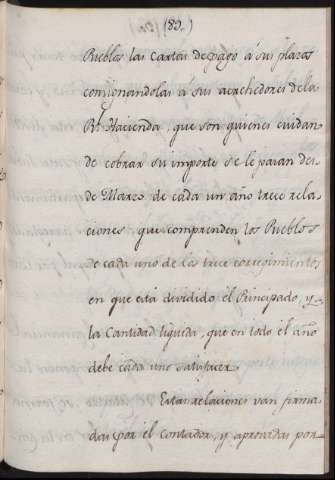 (89.)
Pueblos las cartas de pago á sus plazos
consignandolas á sus acrehedores de la
Rl. Hacienda, que son quienes cuidan
de cobrar su importe se le pasan des-
de Marzo de cada un año trece rela-
ciones que comprenden los Pueblos
de cada uno de los trece corregimientos
en que está dividido el Principado, y
la Cantidad liquida, que en todo el año
debe cada uno satisfacer.
Estas relaciones van firma-
das por el contador, y aprovadas por